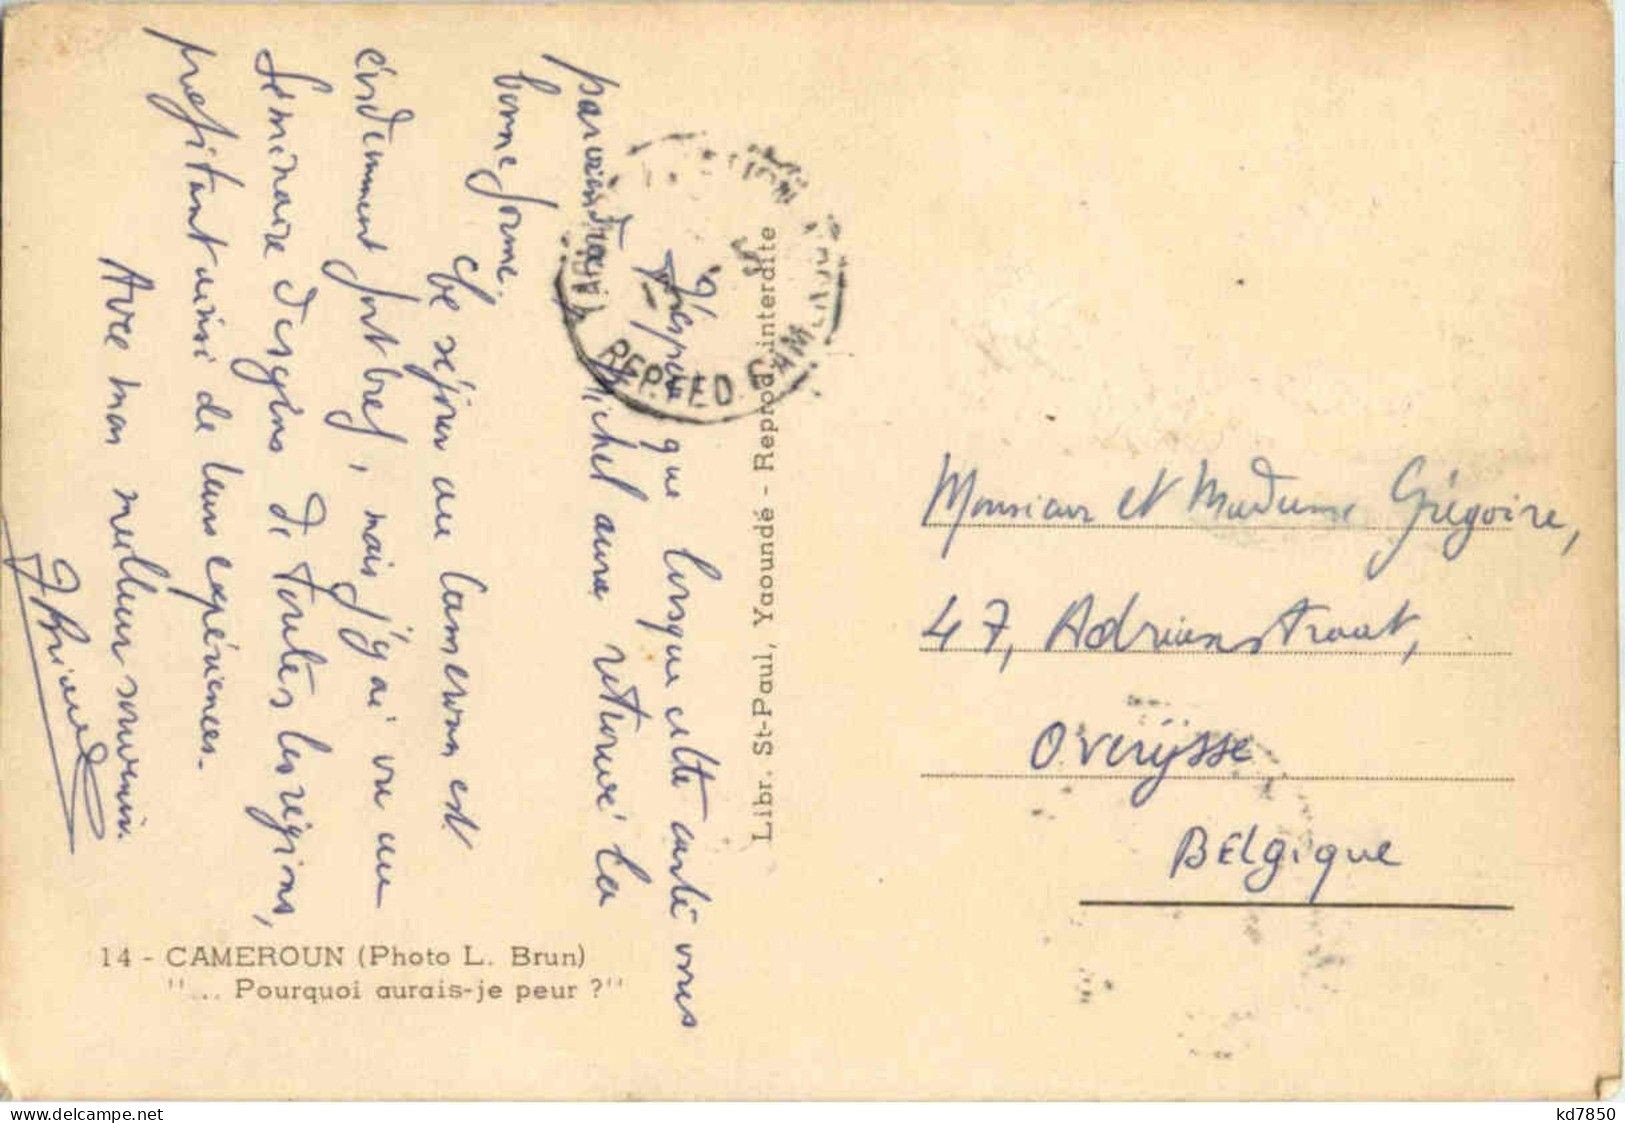 J'espère que lorsque cette carte vous
parviendra Michel aura retrouvé la
bonne forme.
Ce séjour au Cameroun est
évidemment fort bref, mais j'y ai vu un
séminaire des gens de toutes les régions,
profitant ainsi de leurs expériences.
Avec mon meilleur souvenir.
REP. FED. CAM
Libr. St-Paul, Yaoundé - Reprod. interdite
14 - CAMEROUN (Photo L. Brun)
"... Pourquoi aurais-je peur ?"
Monsieur et Madame Grégoire,
47, Adrienstraat,
Overijsse
BElgique
www.delcampe.net
kd7850